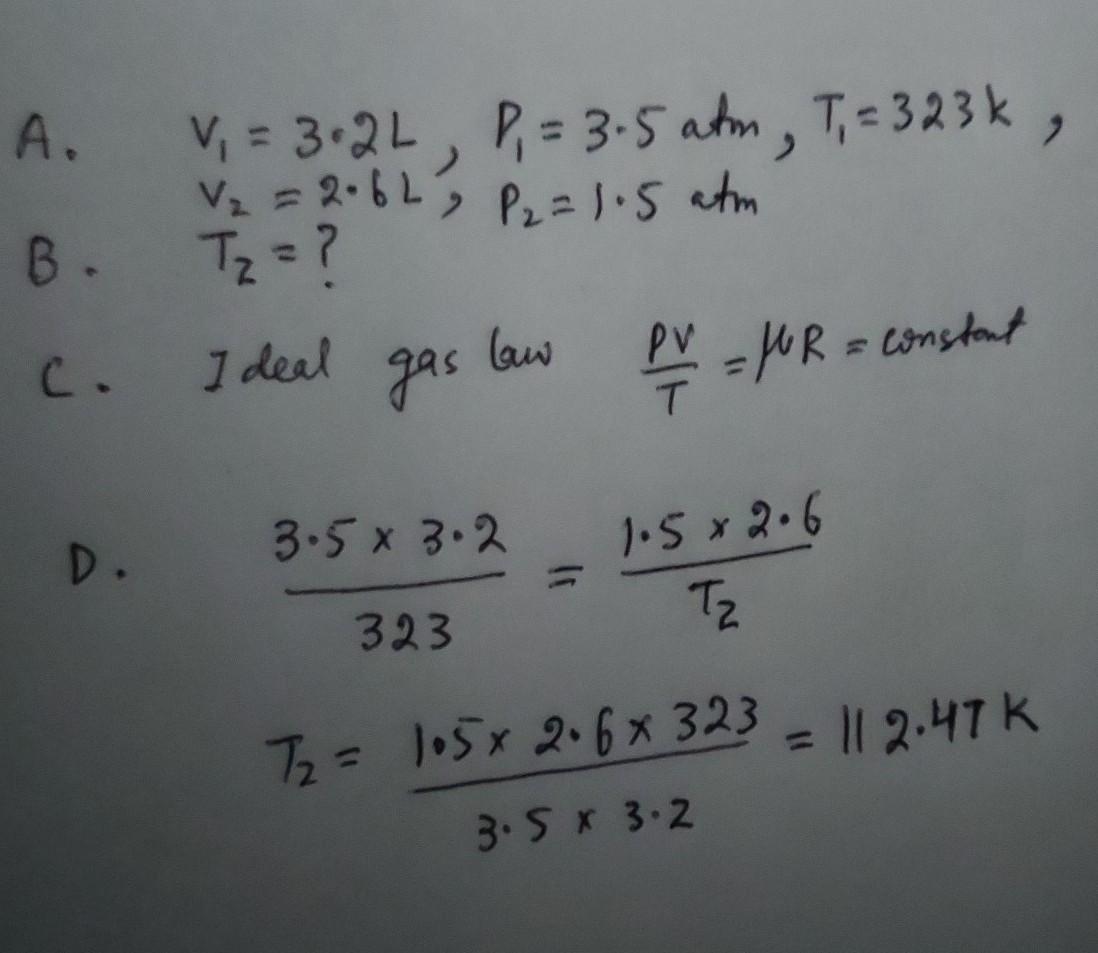 A. V₁ = 3.2L, P₁ = 3.5 atm, T₁ = 323k,
V₂ = 2.6L, P₂ = 1.5 atm
B. T₂ = ?
C. Ideal gas law PV/T = μR = constant
D. 3.5 x 3.2/323 = 1.5 x 2.6/T₂
T₂ = 1.5 x 2.6 x 323/3.5 x 3.2 = 112.47 K